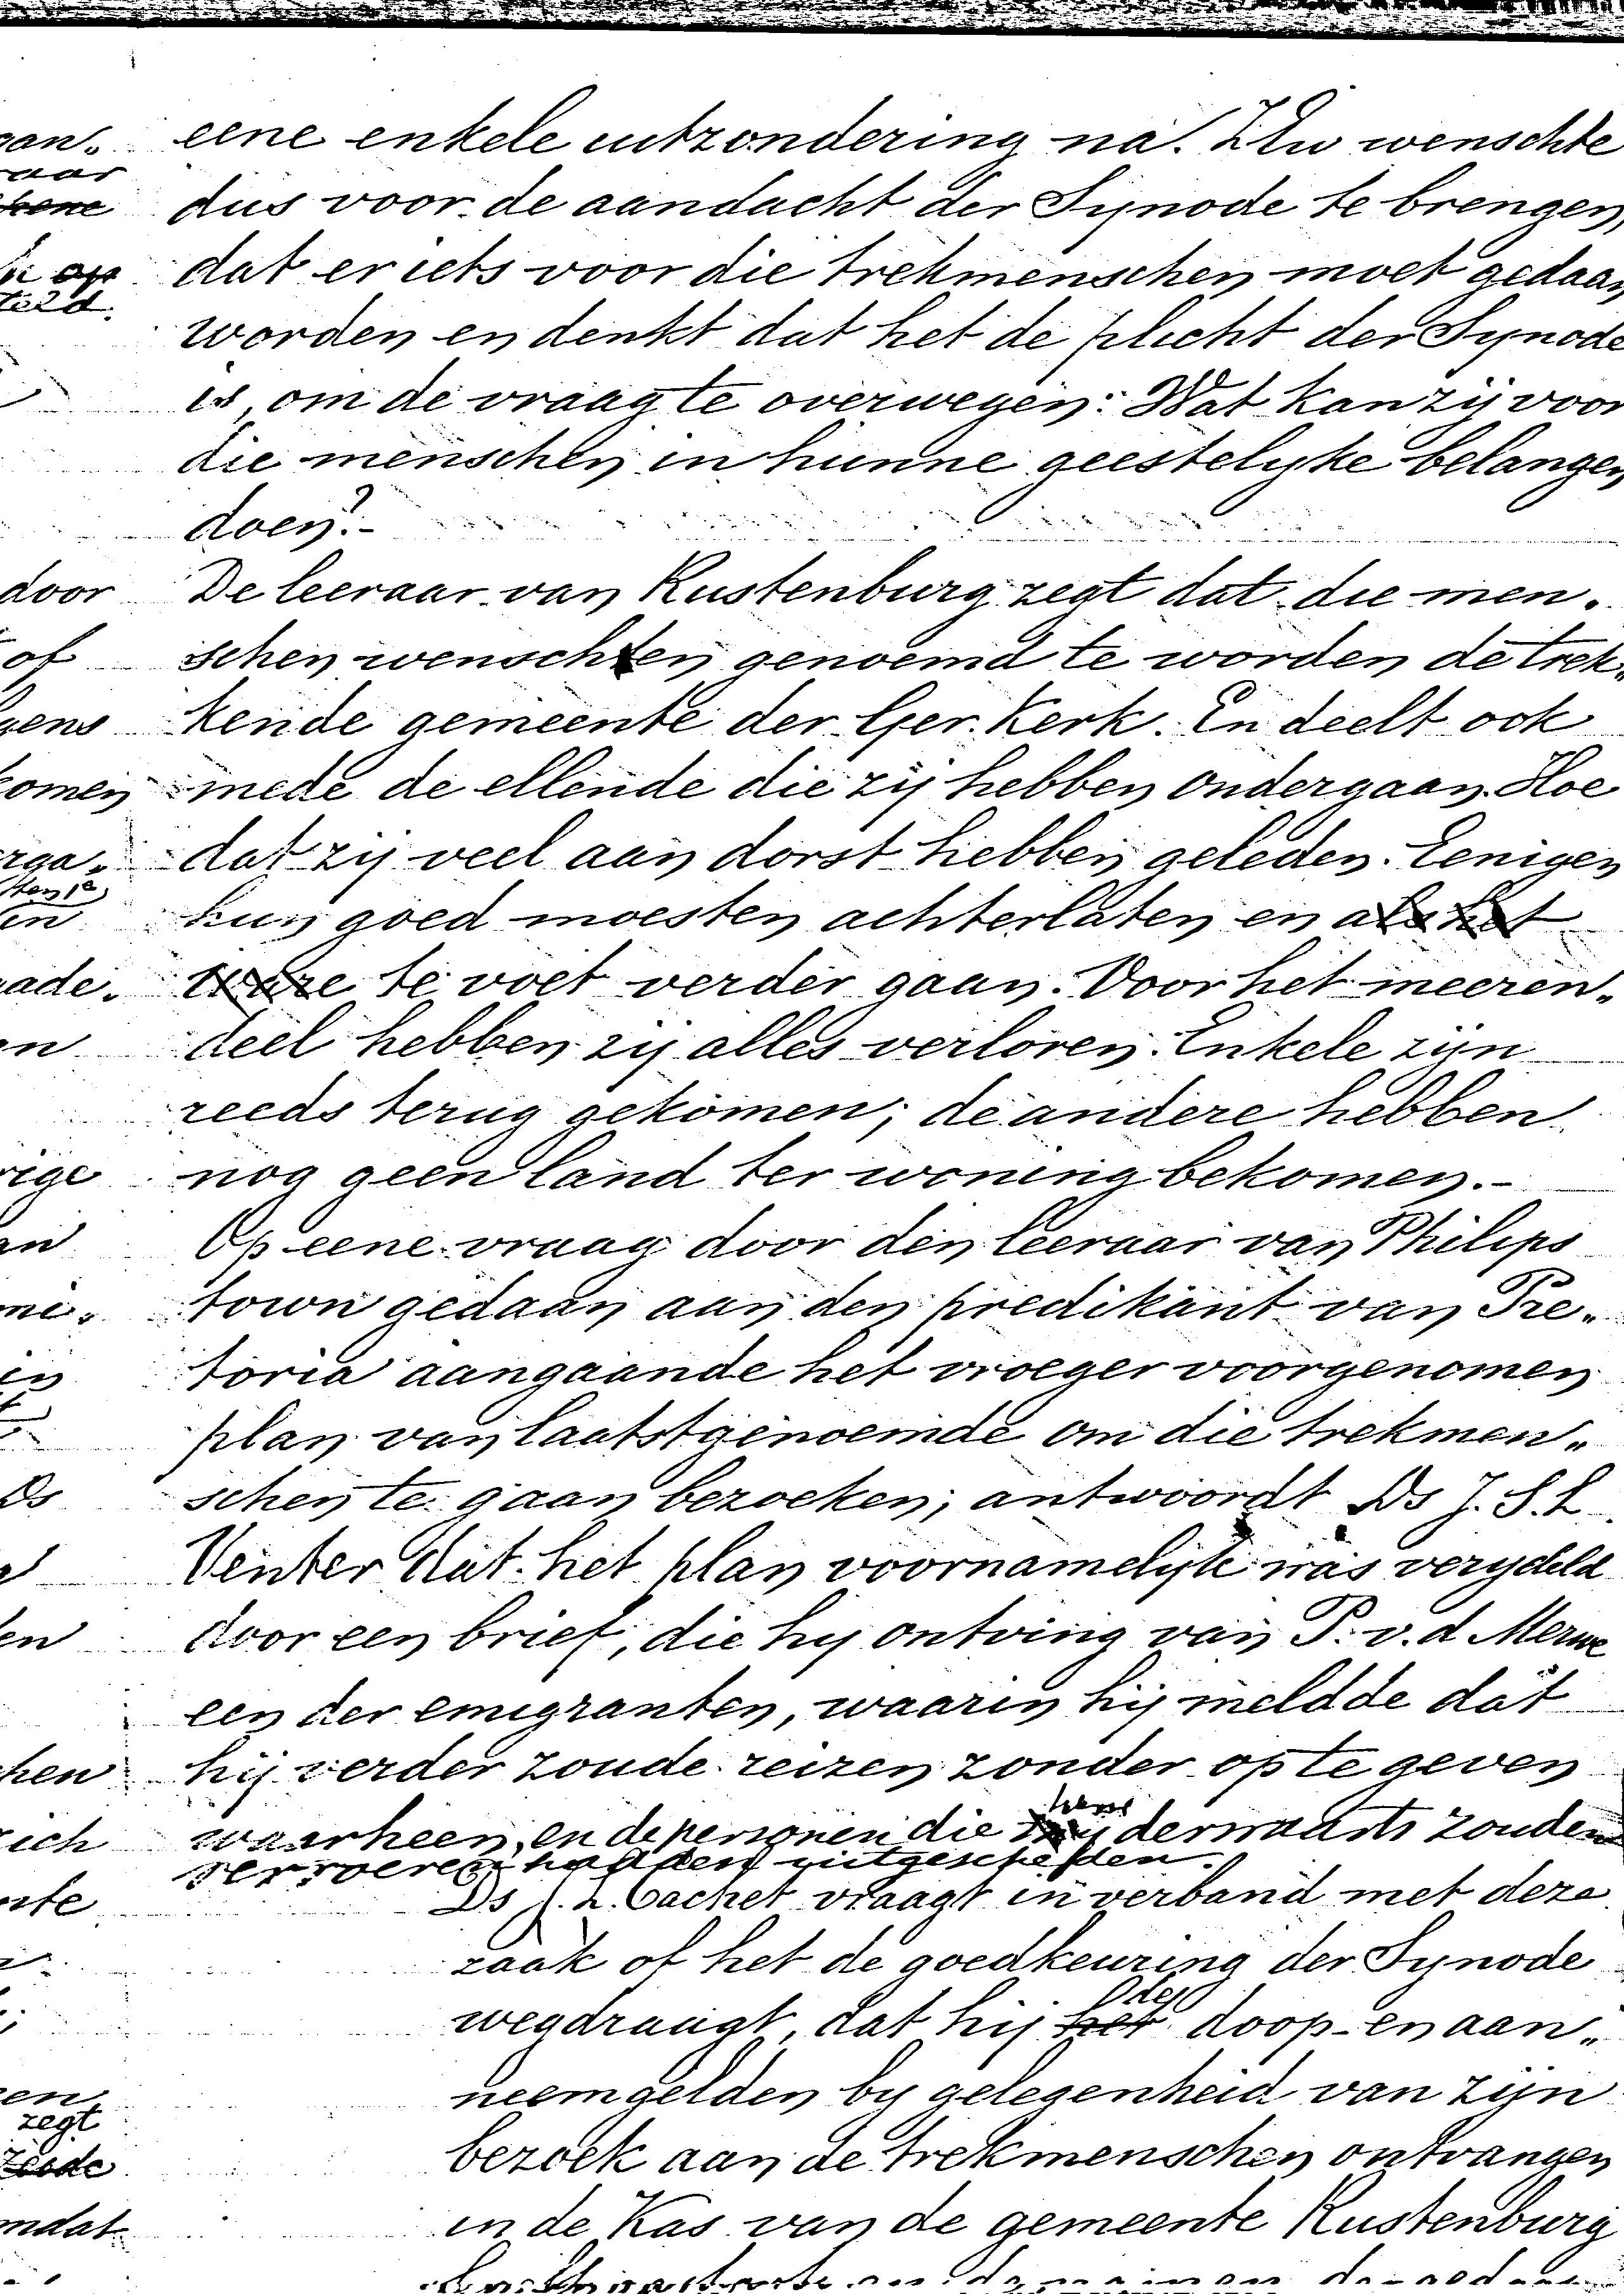 eene enkele uitzondering na. ZEw wenschte
dus voor de aandacht der Synode te brengen,
dat er iets voor die trekmenschen moet gedaan
worden en denkt dat het de plicht der Synode
is, om de vraag te overwegen: Wat kan zij voor
die menschen in hunne geestelijke belangen
doen?-
De leeraar van Rustenburg zegt dat die men-
schen wenschten genoemd te worden de trek-
kende gemeente der Ger. Kerk. En deelt ook
mede de ellende die zij hebben ondergaan. Hoe
dat zij veel aan dorst hebben geleden. Eenigen
hun goed moesten achterlaten en als het
ware te voet verder gaan. Voor het meeren-
deel hebben zij alles verloren. Enkele zijn
reeds terug gekomen; de andere hebben
nog geen land ter woning bekomen.-
Op eene vraag door den leeraar van Philips
town gedaan aan den predikant van Pre-
toria aangaande het vroeger voorgenomen
plan van laatstgenoemde om die trekmen-
schen te gaan bezoeken; antwoordt Ds J. S. L
Venter dat het plan voornamelijk was verydeld
door een brief, die hy ontving van P. v. d Merwe
een der emigranten, waarin hij meldde dat
hij verder zoude reizen zonder op te geven
waarheen, en de personen die hem derwaarts zouden
vervoeren hadden uitgescheiden.
Ds J. L. Cachet vraagt in verband met deze
zaak of het de goedkeuring der Synode
wegdraagt, dat hij het de doop- en aan-
neemgelden by gelegenheid van zijn
bezoek aan de trekmenschen ontvangen
in de Kas van de gemeente Rustenburg